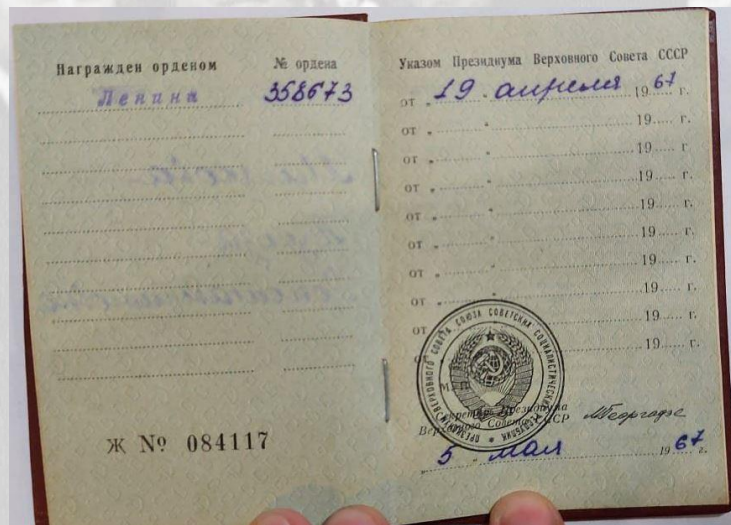 Награжден орденом
№ ордена
Ленина
358673
Ж № 084117
Указом Президиума Верховного Совета СССР
от „ 19 " апреля 1967 г.
от „ " 19 г.
от „ " 19 г.
от „ " 19 г.
от „ " 19 г.
от „ " 19 г.
от „ " 19 г.
от „ " 19 г.
от „ " 19 г.
от „ " 19 г.
ПРЕЗИДИУМ ВЕРХОВНОГО СОВЕТА СОЮЗА СОВЕТСКИХ СОЦИАЛИСТИЧЕСКИХ РЕСПУБЛИК
М.П.
Секретарь Президиума
Верховного Совета СССР
МГеоргадзе
5 мая 1967 г.